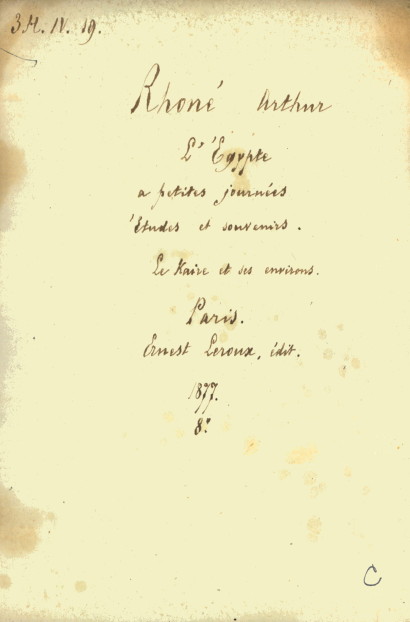 3.H. IV. 19.
Rhoné Arthur
L'Égypte
a petites journées
Études et souvenirs.
Le Kaire et ses environs.
Paris.
Ernest Leroux, édit.
1877.
8º
C